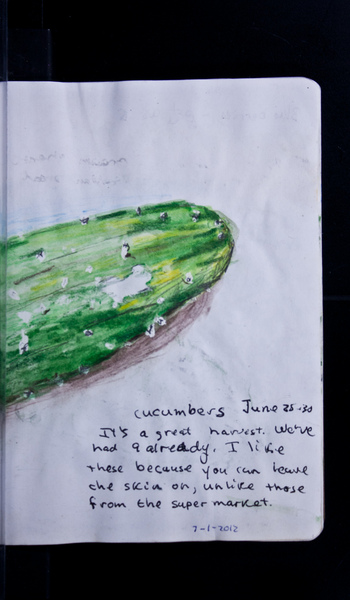 cucumbers June 25-30
It's a great harvest. We've
had 9 already. I like
these because you can leave
the skin on, unlike those
from the super market.
7-1-2012